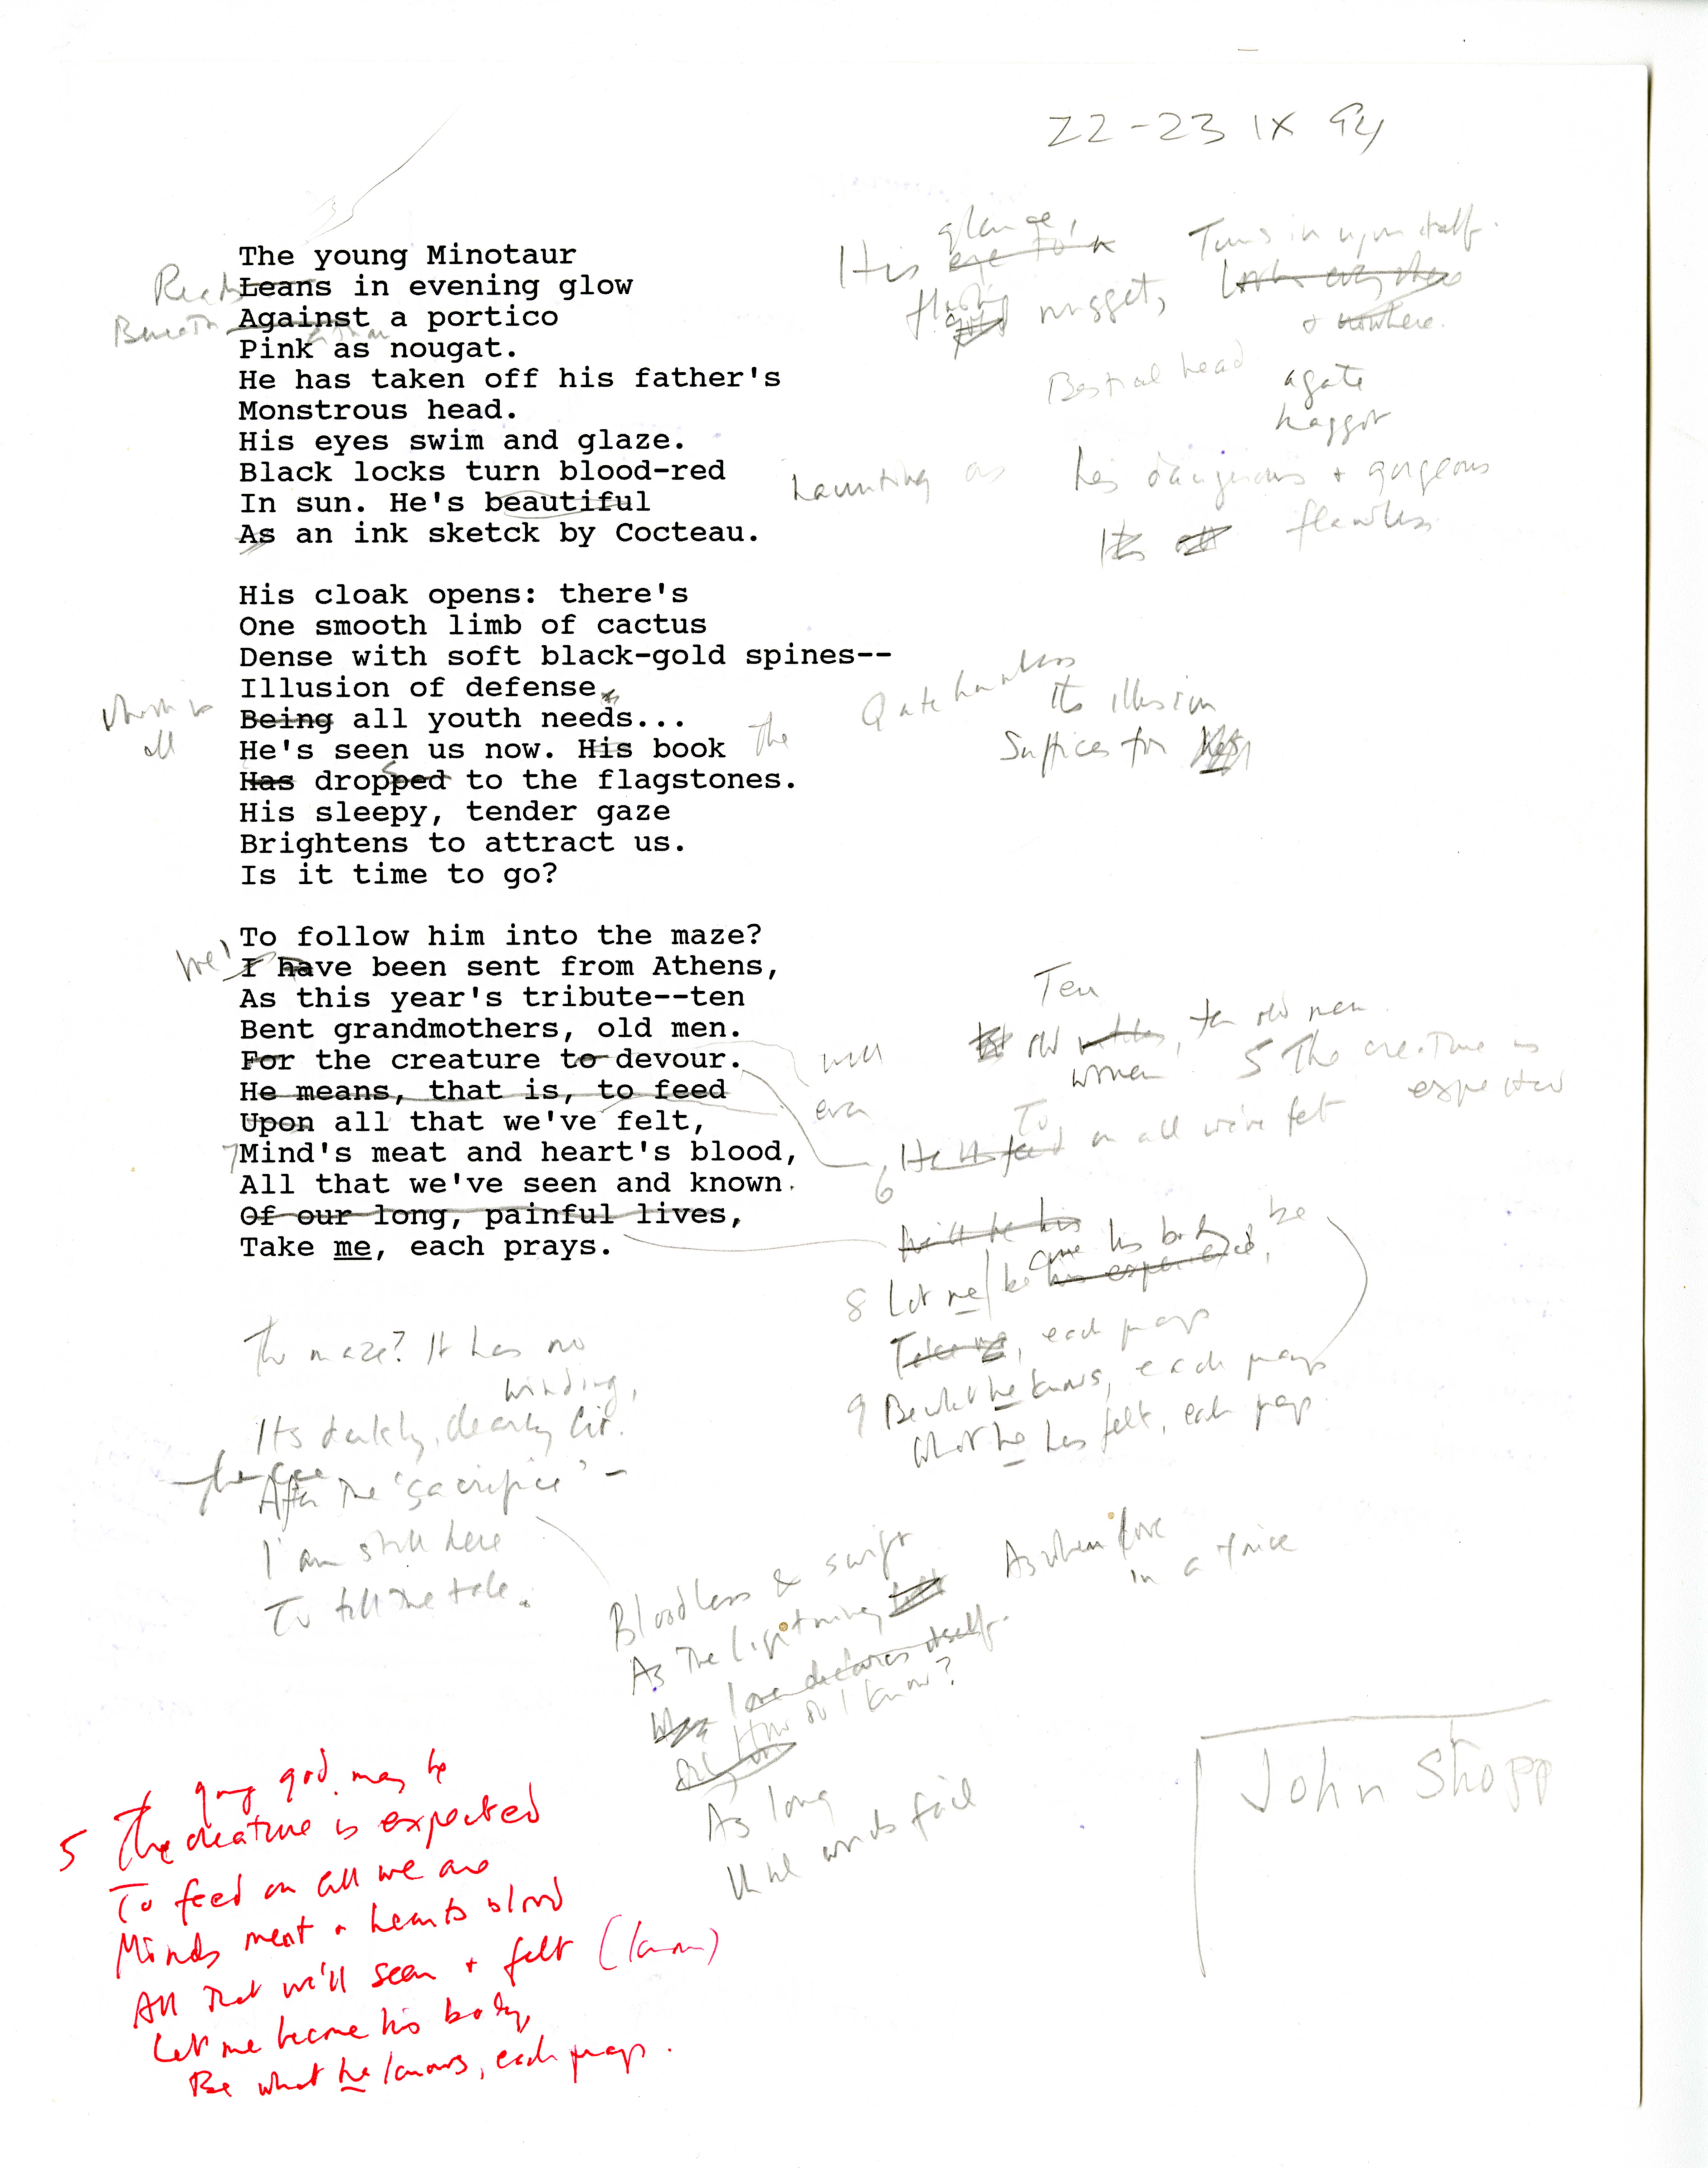 22-23 IX 94
The young Minotaur
Reads Leans in evening glow
Beneath Against a portico
Pink as nougat.
He has taken off his father's
Monstrous head.
His eyes swim and glaze.
Black locks turn blood-red
In sun. He's beautiful
As an ink sketck by Cocteau.
glance,
His eye to a
Turns in upon itself.
nugget,
+ nowhere.
Bestial head
agate
haggot
haunting as
his dangerous + gorgeous
flawless
His cloak opens: there's
One smooth limb of cactus
Dense with soft black-gold spines--
Illusion of defense
Being all youth needs...
He's seen us now. His book
Has dropped to the flagstones.
His sleepy, tender gaze
Brightens to attract us.
Is it time to go?
which is
all
the
Quite harmless
Its illusion
Suffices for
To follow him into the maze?
We' I have been sent from Athens,
As this year's tribute--ten
Bent grandmothers, old men.
For the creature to devour.
He means, that is, to feed
Upon all that we've felt,
7 Mind's meat and heart's blood,
All that we've seen and known.
Of our long, painful lives,
Take me, each prays.
Ten
old witches, ten old men
women
5 The creature is
expected
To
6 He'll feed on all we've felt
will be his
come his body, be
8 Let me be his experience,
Take me, each prays
9 Be what he knows, each prays
What he has felt, each prays
The maze? It has no
winding,
Its darkly, clearly lit.
After the 'sacrifice' –
I am still here
To tell the tale.
Bloodless & swift
As the lightning
As when love
in a trice
When love declares itself.
How do I know?
As long
Until words fail
John Shopp
young god may be
5 The creature is expected
To feed on all we are
Minds meat + hearts blood
All that we'll seen + felt (known)
Let me become his body,
Be what he knows, each prays.